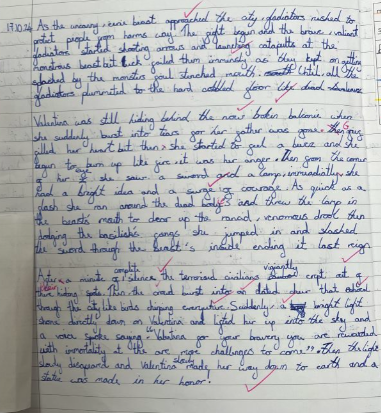 17.10.24 As the uncanny, eerie beast approached the city, gladiators rushed to
protect people from harms way. The fight began and the brave, valiant
gladiators started shooting arrows and launching catapults at the
monstrous beast but luck failed them immensly as they kept on getting
splashed by the monsters foul stenched mouth. Until, all the
gladiators plummeted to the hard cobbled floor like dead
Valentina was still hiding behind the now broken balcone when
she suddenly burst into tears for her father was gone then
filled her heart but then she started to feel a buzz and she
began to burn up like fire, it was her anger. Then from the corner
of her eye she saw a sword and a lamp, immediatly, she
had a bright idea and a surge of courage. As quick as a
flash she ran around the dead and threw the lamp in
the beasts mouth to clear up the rancid, venomous drool then
dodging the basilisks fangs she jumped in and slashed
the sword through the Beast's inside ending it last reign.
complete vigilantly
After a minute of silence the terrorised civilians crept out of
there hiding spots. Then the crowd burst into an elated cheer that echoed
through the sky like birds chirping everywhere. Suddenly, a bright light
shone directly down on Valentina and lifted her up into the sky and
a voice spoke saying "Valentina for your bravery you are rewarded
with immortality at the are more challenges to come". Then the light
slowly disapeard and Valentina slowly made her way down to earth and a
statue was made in her honor.